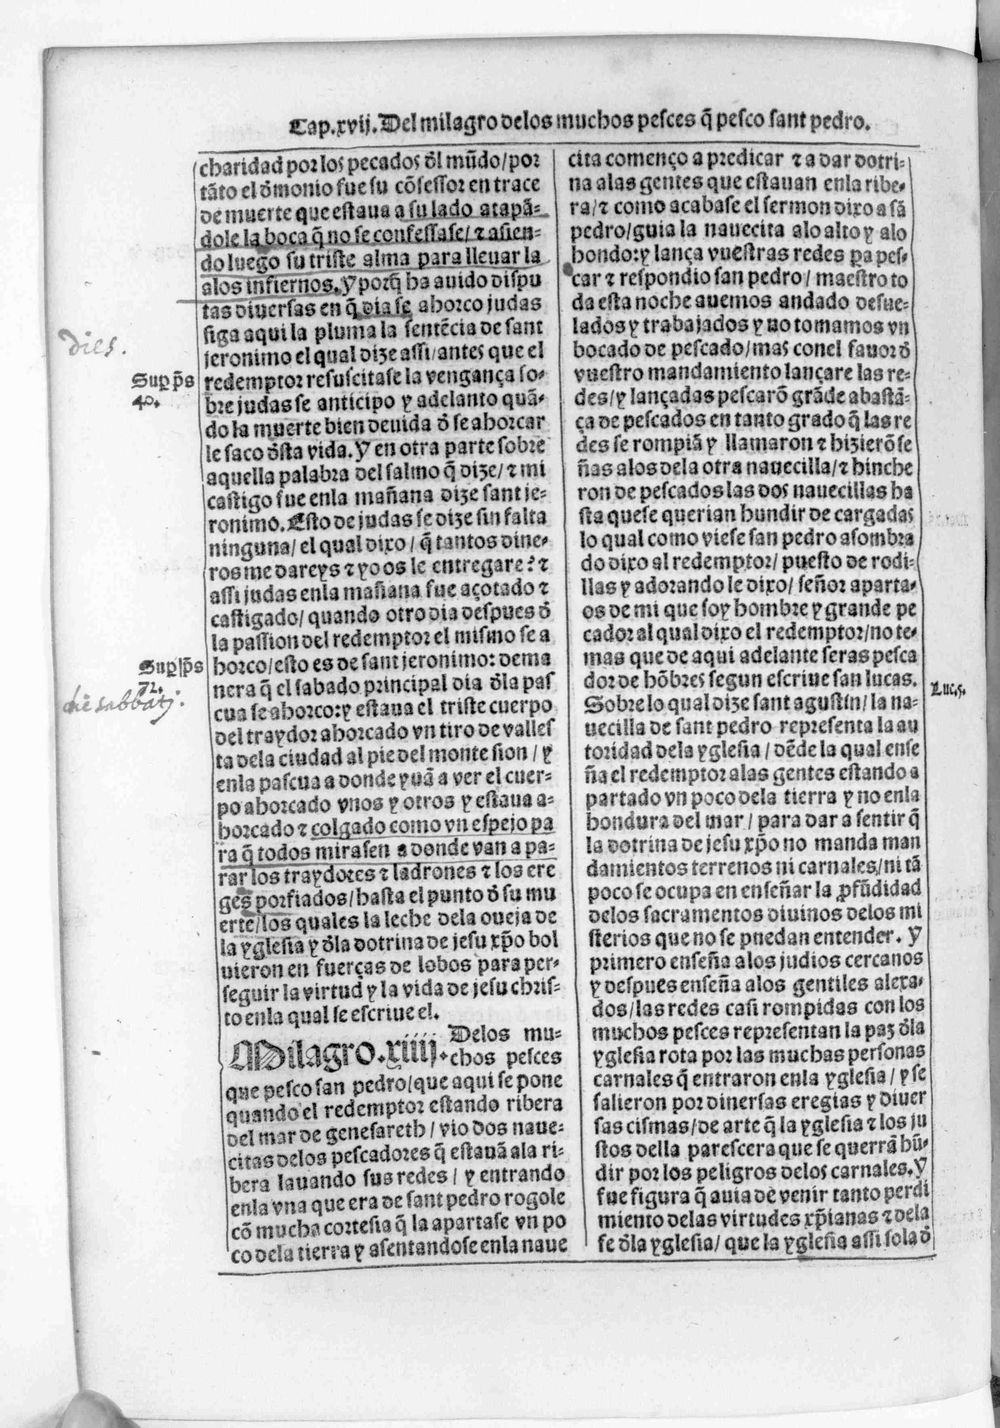 Cap.xvij. Del milagro delos muchos pesces q̃ pesco sant pedro.
charidad por los pecados ðl mũdo/por
tãto el ðmonio fue su cõfessor en trace
de muerte que estaua a su lado atapã-
dole la boca q̃ no se confessase/ ⁊ asien-
do luego su triste alma para lleuar la
alos infiernos. Y porq̃ ha auido dispu
tas diuersas en q̃ dia se ahorco judas
siga aqui la pluma la sentẽcia de sant
jeronimo el qual dize assi/antes que el
redemptor resuscitase la vengança so-
bre judas se anticipo y adelanto quã-
do la muerte bien deuida ð se ahorcar
le saco ðsta vida. Y en otra parte sobre
aquella palabra del salmo q̃ dize/⁊ mi
castigo fue enla mañana dize sant je-
ronimo. Esto de judas se dize sin falta
ninguna/ el qual dixo/ q̃ tantos dine-
ros me dareys ⁊ yo os le entregare? ⁊
assi judas enla mañana fue açotado ⁊
castigado/ quando otro dia despues ð
la passion del redemptor el mismo se a
horco/esto es de sant jeronimo: dema
nera q̃ el sabado principal dia ðla pas
cua se ahorco:y estaua el triste cuerpo
del traydor ahorcado vn tiro de valles
ta dela ciudad al pie del monte sion/ y
enla pascua a donde yuã a ver el cuer-
po ahorcado vnos y otros y estaua a-
horcado ⁊ colgado como vn espejo pa
ra q̃ todos mirasen a donde van a pa-
rar los traydores ⁊ ladrones ⁊ los ere
ges porfiados/hasta el punto ð su mu
erte/los quales la leche dela oueja de
la yglesia y ðla dotrina de jesu xp̃o bol
uieron en fuerças de lobos para per-
seguir la virtud y la vida de jesu chris-
to enla qual se escriue el.
Milagro.xiiij. Delos mu-
chos pesces
que pesco san pedro/que aqui se pone
quando el redemptor estando ribera
del mar de genesareth/ vio dos naue-
citas delos pescadores q̃ estauã ala ri-
bera lauando sus redes/ y entrando
enla vna que era de sant pedro rogole
cõ mucha cortesia q̃ la apartase vn po
co dela tierra y asentandose enla naue
dies.
Sup̱ p̃s
40.
Sup̱ p̃s
72.
die sabbatj.
cita començo a predicar ⁊ a dar dotri-
na alas gentes que estauan enla ribe-
ra/⁊ como acabase el sermon dixo a sã
pedro/guia la nauecita alo alto y alo
hondo:y lança vuestras redes p̱a pes-
car ⁊ respondio san pedro/ maestro to
da esta noche auemos andado desue-
lados y trabajados y no tomamos vn
bocado de pescado/mas conel fauor ð
vuestro mandamiento lançare las re-
des/y lançadas pescarõ grãde abastã-
ça de pescados en tanto grado q̃ las re
des se rompiã y llamaron ⁊ hizierõ se
ñas alos dela otra nauecilla/⁊ hinche
ron de pescados las dos nauecillas ha
sta que se querian hundir de cargadas
lo qual como viese san pedro asombra
do dixo al redemptor/ puesto de rodi-
llas y adorando le dixo/ señor aparta-
os de mi que soy hombre y grande pe
cador al qual dixo el redemptor/no te-
mas que de aqui adelante seras pesca
dor de hõbres segun escriue san lucas.
Sobre lo qual dize sant agustin/ la na-
uecilla de sant pedro representa la au
toridad dela yglesia/ dẽde la qual ense
ña el redemptor alas gentes estando a
partado vn poco dela tierra y no enla
hondura del mar/ para dar a sentir q̃
la dotrina de jesu xp̃o no manda man
damientos terrenos ni carnales/ni tã
poco se ocupa en enseñar la ꝓfũdidad
delos sacramentos diuinos delos mi
sterios que no se puedan entender. Y
primero enseña alos judios cercanos
y despues enseña alos gentiles alexa-
dos/las redes casi rompidas con los
muchos pesces representan la paz ðla
yglesia rota por las muchas personas
carnales q̃ entraron enla yglesia/ y se
salieron por diuersas eregias y diuer
sas cismas/de arte q̃ la yglesia ⁊ los ju
stos della parescera que se querrã hũ-
dir por los peligros delos carnales. Y
fue figura q̃ auia de venir tanto perdi
miento delas virtudes xp̃ianas ⁊ dela
fe ðla yglesia/ que la yglesia assi sola ð
Luc.5.